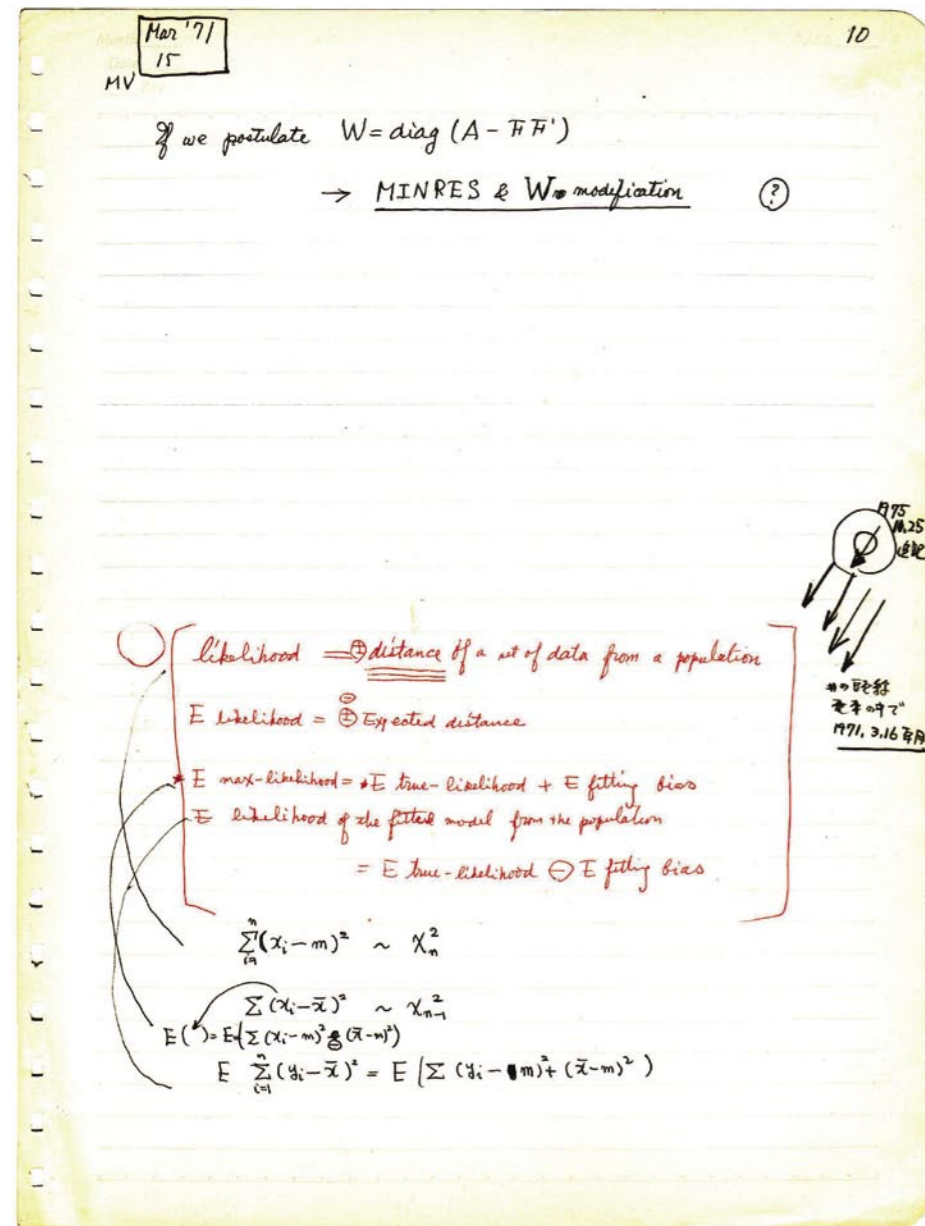 Mar '71
15
10
MV
If we postulate W = diag (A - FF')
→ MINRES & W modification ?
1975
追記
likelihood = ⊕ distance of a set of data from a population
⊖
E likelihood = ⊕ Expected distance
* E max-likelihood = E true-likelihood + E fitting bias
E likelihood of the fitted model from the population
= E true-likelihood ⊖ E fitting bias
の中で
1971, 3.16
n
Σ (x_i - m)² ~ χ²_n
i=1
Σ (x_i - x̄)² ~ χ²_{n-1}
E( ) = E{Σ (x_i - m)² ⊖ (x̄ - m)²)
E Σ_{i=1}^{n} (y_i - x̄)² = E (Σ (y_i - m)² + (x̄ - m)²)